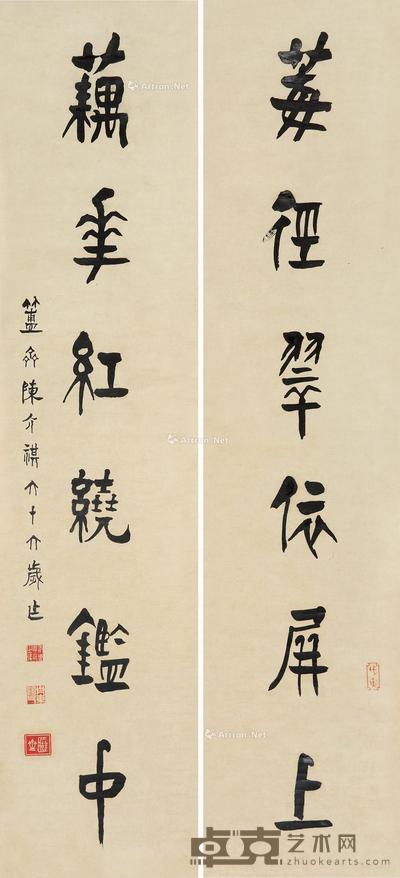 莓徑翠依屏上
藕華紅繞鑑中
簠齋陳介祺六十六歲作
Artron.Net
Artron.Net
Artron.Net
Artron.Net
卓克艺术网
zhuokearts.com